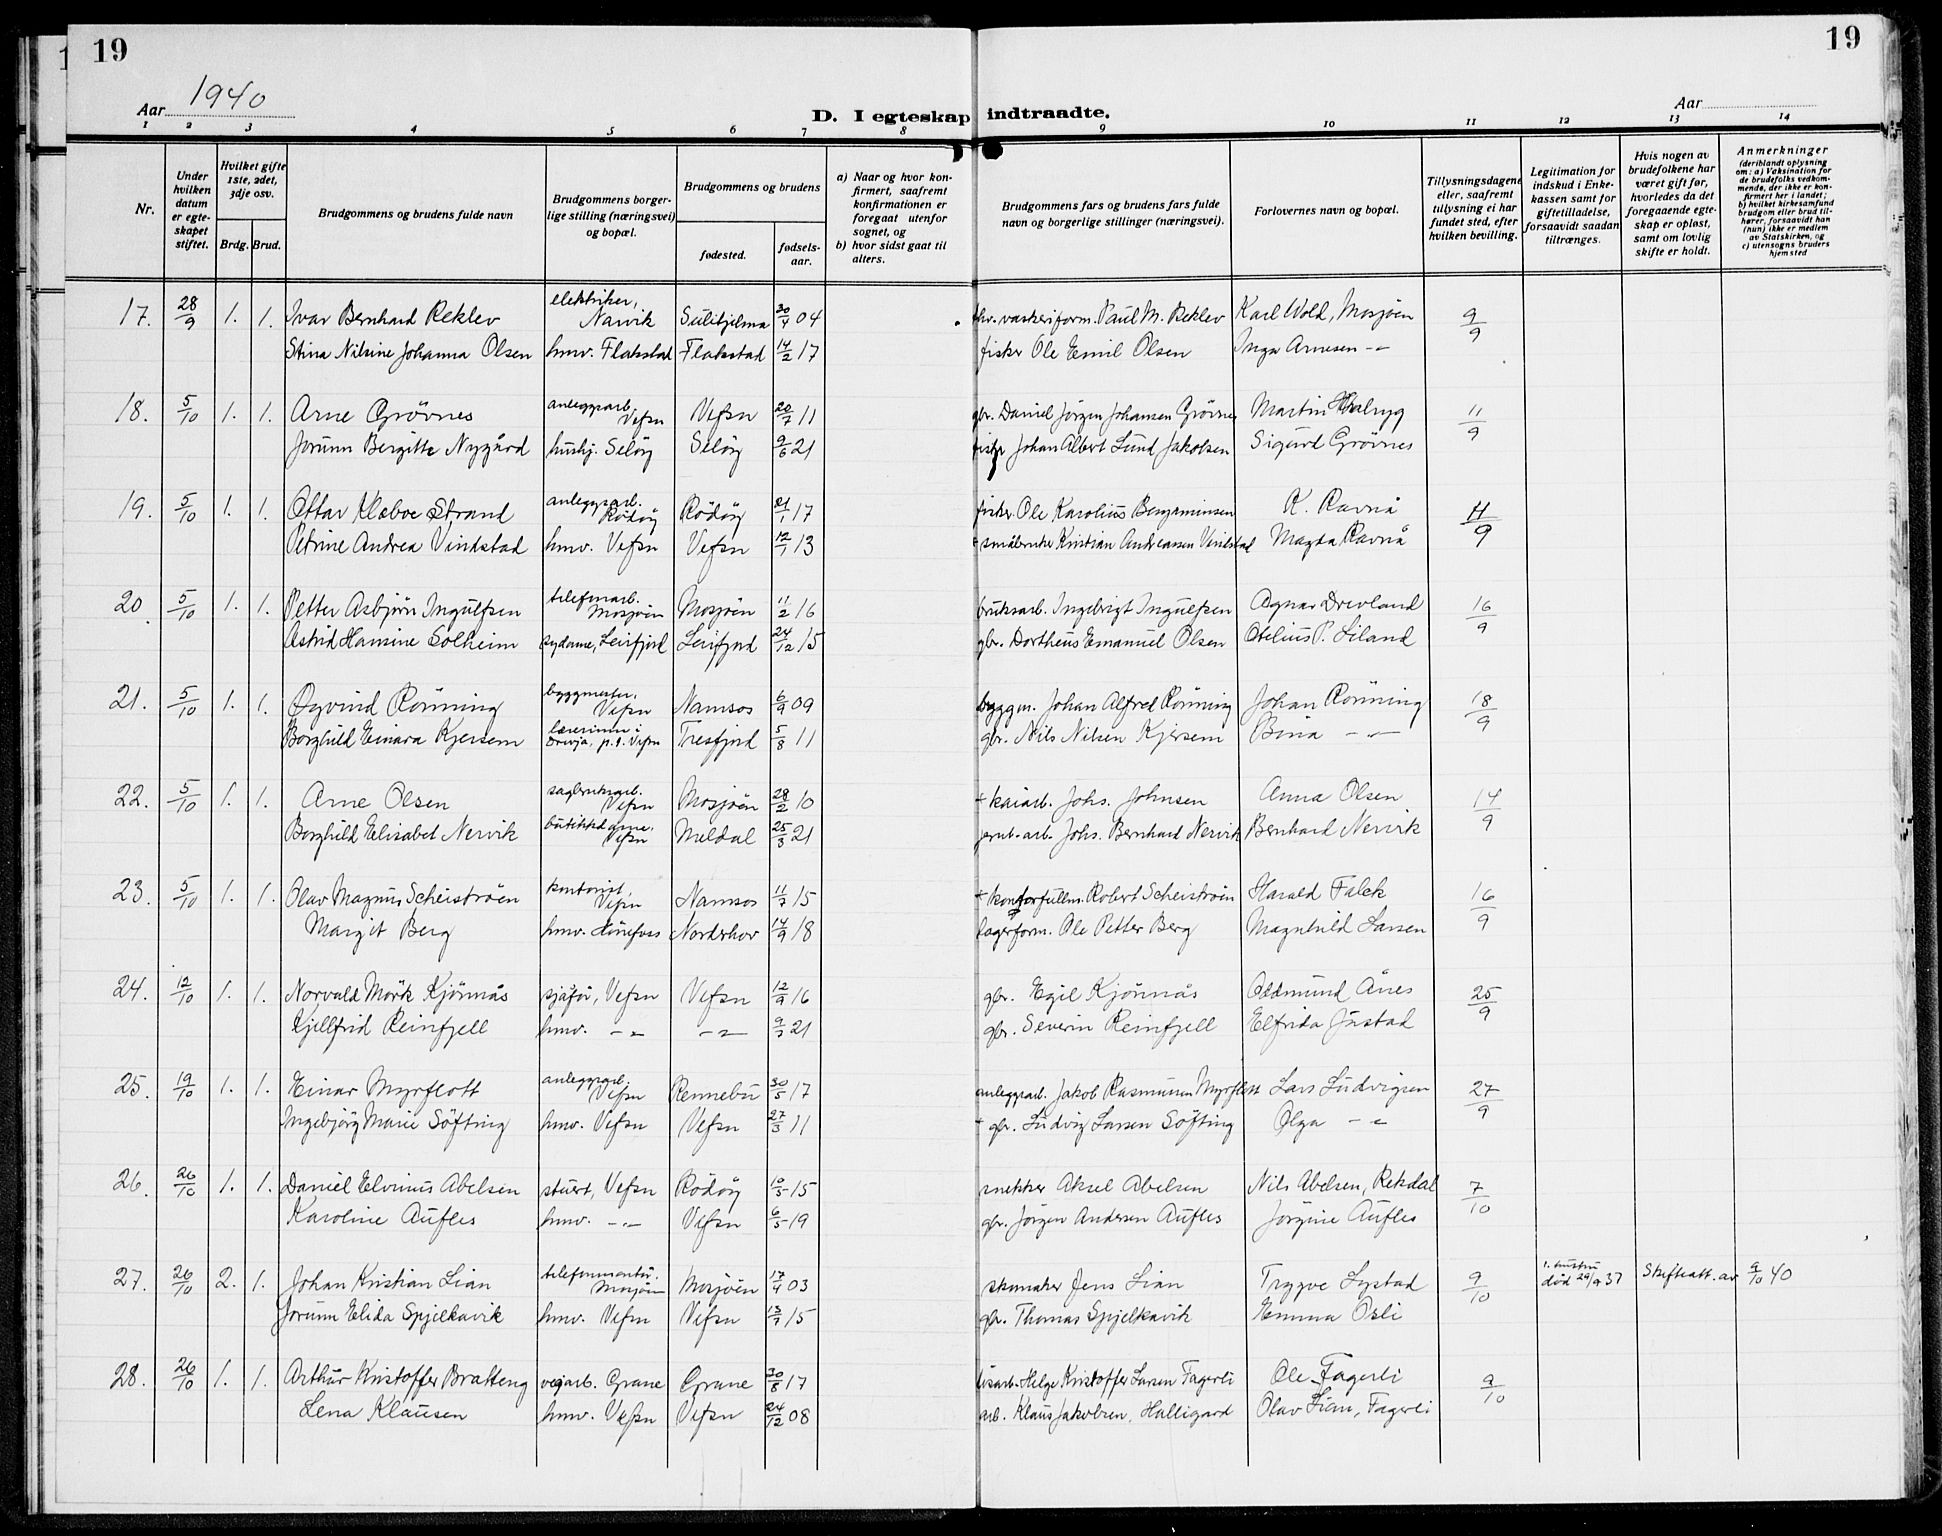 19
19
Aar 1940
D. I egteskap indtraadte.
Aar
1 2 3 4 5 6 7 8 9 10 11 12 13 14
Nr.
Under hvilken datum er egteskapet stiftet.
Hvilket gifte 1ste, 2det, 3dje osv.
Brdg. Brud.
Brudgommens og brudens fulde navn
Brudgommens borgerlige stilling (næringsvei) og bopæl.
Brudgommens og brudens
fødested.
fødselsaar.
a) Naar og hvor konfirmert, saafremt konfirmationen er foregaat utenfor sognet, og
b) hvor sidst gaat til alters.
Brudgommens fars og brudens fars fulde navn og borgerlige stillinger (næringsvei).
Forlovernes navn og bopæl.
Tillysningsdagene eller, saafremt tillysning ei har fundet sted, efter hvilken bevilling.
Legitimation for indskud i Enkekassen samt for giftetilladelse, forsaavidt saadan tiltrænges.
Hvis nogen av brudefolkene har været gift før, hvorledes da det foregaaende egteskap er opløst, samt om lovlig skifte er holdt.
Anmerkninger (deriblandt oplysning om: a) Vaksination for de brudefolks vedkommende, der ikke er konfirmert her i landet; b) hvilket kirkesamfund brudgom eller brud tilhører, forsaavidt han (hun) ikke er medlem av Statskirken, og c) utensogns bruders hjemsted
17. 28/9 1. 1. Ivar Bernhard Reklev elektriker, Narvik Sulitjelma 30/4 04 fhv. vaskeriform. Paul M. Reklev Karl Wold, Mosjøen 9/9
Stina Nilsine Johanna Olsen hmv. Flakstad Flakstad 14/2 17 fisker Ole Emil Olsen Inga Arnesen -"-
18. 5/10 1. 1. Arne Grövnes anleggsarb. Vefsn Vefsn 20/7 11 gbr. Daniel Jörgen Johansen Grövnes Martin 11/9
Jorunn Bergitte Nygård hushj. Seløy Seløy 9/6 21 fisker Johan Albert Lund Jakobsen Sigurd Grövnes
19. 5/10 1. 1. Ottar Klæboe Strand anleggsarb. Rödöy Rödöy 21/1 17 fisker Ole Karolius Benjaminsen K. Ravnå 11/9
Petrine Andrea Vindstad hmv. Vefsn Vefsn 12/1 13 + småbruker Kristian Andreassen Vindstad Magda Ravnå
20. 5/10 1. 1. Petter Asbjörn Ingulfsen telefonarb. Mosjøen Mosjøen 11/2 16 bruksarb. Ingebrigt Ingulfsen Agnar Drevland 16/9
Astrid Hansine Solheim sydame, Leirfjord Leirfjord 24/12 15 gbr. Dortheus Emanuel Olsen Otelius P. Liland
21. 5/10 1. 1. Øyvind Rönning byggmester, Vefsn Namsos 6/9 09 byggm. Johan Alfred Rönning Johan Rönning 18/9
Borghild Einara Kjersem lærerinne i Drevja, p.t. Vefsn Tresfjord 5/8 11 gbr. Nils Nilsen Kjersem Bina -"-
22. 5/10 1. 1. Arne Olsen sagbruksarb. Vefsn Mosjøen 28/2 10 + kaiarb. Johs. Johnsen Anna Olsen 14/9
Borghild Elisabet Nervik butikkdame, Vefsn Meldal 25/3 21 jernb.-arb. Johs. Bernhard Nervik Bernhard Nervik
23. 5/10 1. 1. Olav Magnus Scheiströen kontorist, Vefsn Namsos 11/7 15 + kontorfullm. Robert Scheiströen Harald Falck 16/9
Margit Berg hmv. Hönefoss Norderhov 14/9 18 lagerform. Ole Petter Berg Magnhild Larsen
24. 12/10 1. 1. Norvald Mörk Kjönnås sjåför, Vefsn Vefsn 12/9 16 gbr. Egil Kjönnås Oddmund Ånes 25/9
Kjellfrid Reinfjell hmv. -"- -"- 9/3 21 gbr. Severin Reinfjell Elfrida Justad
25. 19/10 1. 1. Einar Myrflott anleggsarb. Vefsn Rennebu 30/5 17 anleggsarb. Jakob Rasmussen Myrflott Lars Ludvigsen 27/9
Ingebjörg Marie Söfting hmv. Vefsn Vefsn 27/3 11 + gbr. Ludvig Larsen Söfting Olga -"-
26. 26/10 1. 1. Daniel Elvinus Abelsen stuert, Vefsn Rödöy 10/5 15 snekker Aksel Abelsen Nils Abelsen, Rekdal 7/10
Karoline Aufles hmv. -"- Vefsn 6/5 19 gbr. Jörgen Andersen Aufles Jörgine Aufles
27. 26/10 2. 1. Johan Kristian Lian telefonmontör, Mosjøen Mosjøen 17/4 03 skomaker Jens Lian Trygve Lystad 9/10 1. hustru död 29/9 37 Skifteatt. av 9/10 40
Jorunn Elida Spjelkavik hmv. Vefsn Vefsn 13/7 15 gbr. Thomas Spjelkavik Emma Osli
28. 26/10 1. 1. Arthur Kristoffer Bratteng vegarb. Grane Grane 30/8 17 Helge Kristoffer Larsen Fagerli Ole Fagerli 9/10
Lena Klausen hmv. Vefsn Vefsn 24/12 08 arb. Klaus Jakobsen, Halligard Olav Lian, Fagerli